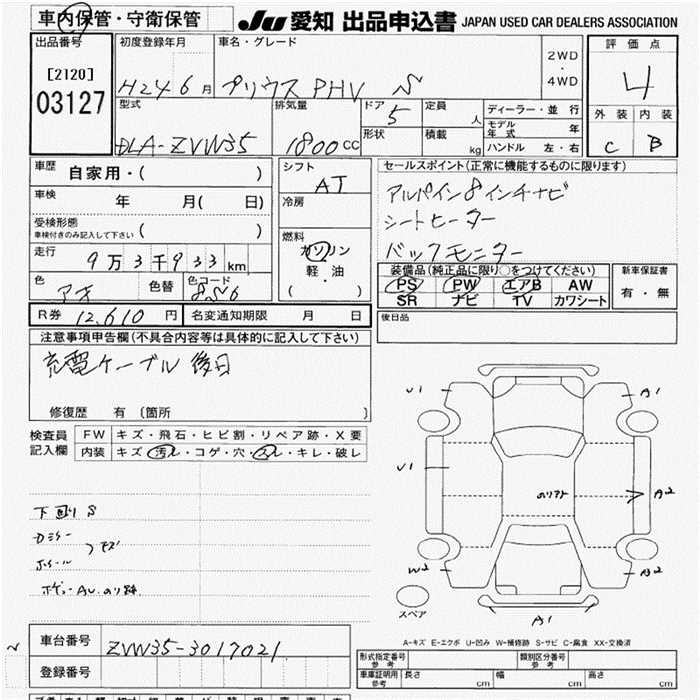 車内保管・守衛保管
JU 愛知 出品申込書 JAPAN USED CAR DEALERS ASSOCIATION
出品番号
[2120]
03127
初度登録年月
H24 6月
車名・グレード
プリウス PHV S
2WD
・
4WD
評価点
4
外装 内装
C B
型式
DLA-ZVW35
排気量
1800 CC
ドア
5
形状
定員
人
積載
kg
ディーラー・並行
モデル年式 年
ハンドル 左・右
車歴 自家用・( )
車検 年 月( 日)
受検形態
車検付きのみ記入して下さい ( )
走行 9万3千933km
色 アオ 色替 色コード 8S6
シフト
AT
冷房
燃料
ガソリン
軽・油
( )
セールスポイント(正常に機能するものに限ります)
アルパイン8インチナビ
シートヒーター
バックモニター
装備品(純正品に限り○をつけてください)
PS PW エアB AW
SR ナビ TV カワシート
新車保証書
有・無
R券 12,610 円 名変通知期限 月 日
後日品
注意事項申告欄(不具合内容等は具体的に記入して下さい)
充電ケーブル 後日
修復歴 有 〔箇所 〕
検査員記入欄
FW キズ・飛石・ヒビ割・リペア跡・X要
内装 キズ・汚レ・コゲ・穴・スレ・キレ・破レ
下回りS
カミラー
ホイール
キズ
ボデーAU のり跡
U1 A1
U1 のりアト A2
W2 B2
A1
スペア
A-キズ E-エクボ U-凹み W-補修跡 S-サビ C-腐食 XX-交換済
車台番号 ZVW35-3017021
登録番号
形式指定番号 参考 類別区分番号 参考
車庫証明用 参考 長さ cm 幅 cm 高さ cm